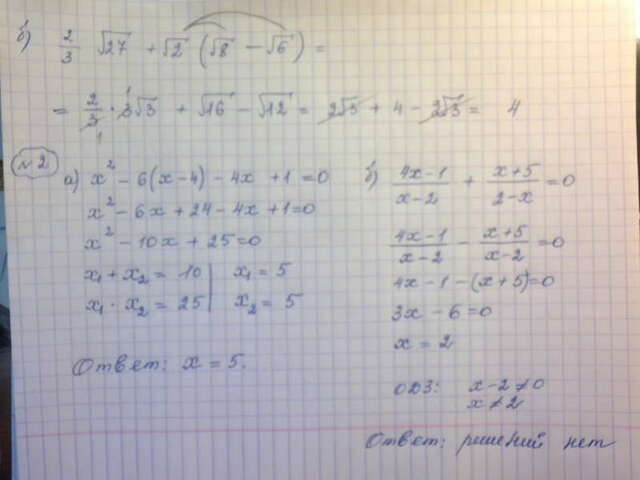 б) 2/3 √27 + √2 (√8 − √6) =
= 2/3 · 3√3 + √16 − √12 = 2√3 + 4 − 2√3 = 4
№2
а) x² − 6(x−4) − 4x + 1 = 0
x² − 6x + 24 − 4x + 1 = 0
x² − 10x + 25 = 0
x₁ + x₂ = 10 | x₁ = 5
x₁ · x₂ = 25 | x₂ = 5
Ответ: x = 5.
б) (4x−1)/(x−2) + (x+5)/(2−x) = 0
(4x−1)/(x−2) − (x+5)/(x−2) = 0
4x − 1 − (x+5) = 0
3x − 6 = 0
x = 2
ОДЗ: x−2 ≠ 0
x ≠ 2
Ответ: решений нет